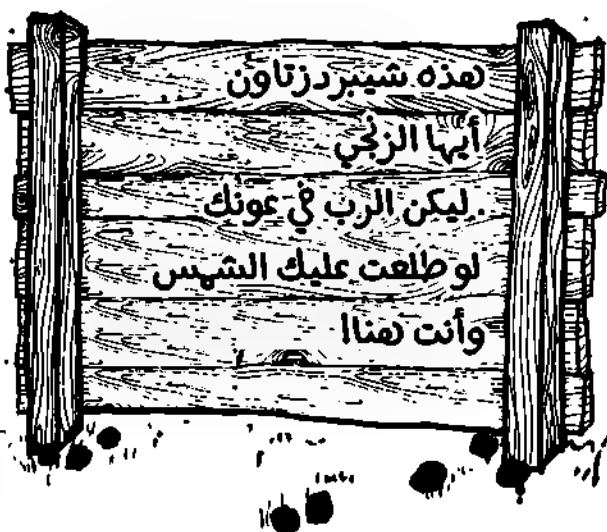 هذه شيبردزتاون
أيها الزنجي
.. ليكن الرب في عونك
لو طلعت عليك الشمس
وأنت هنا!